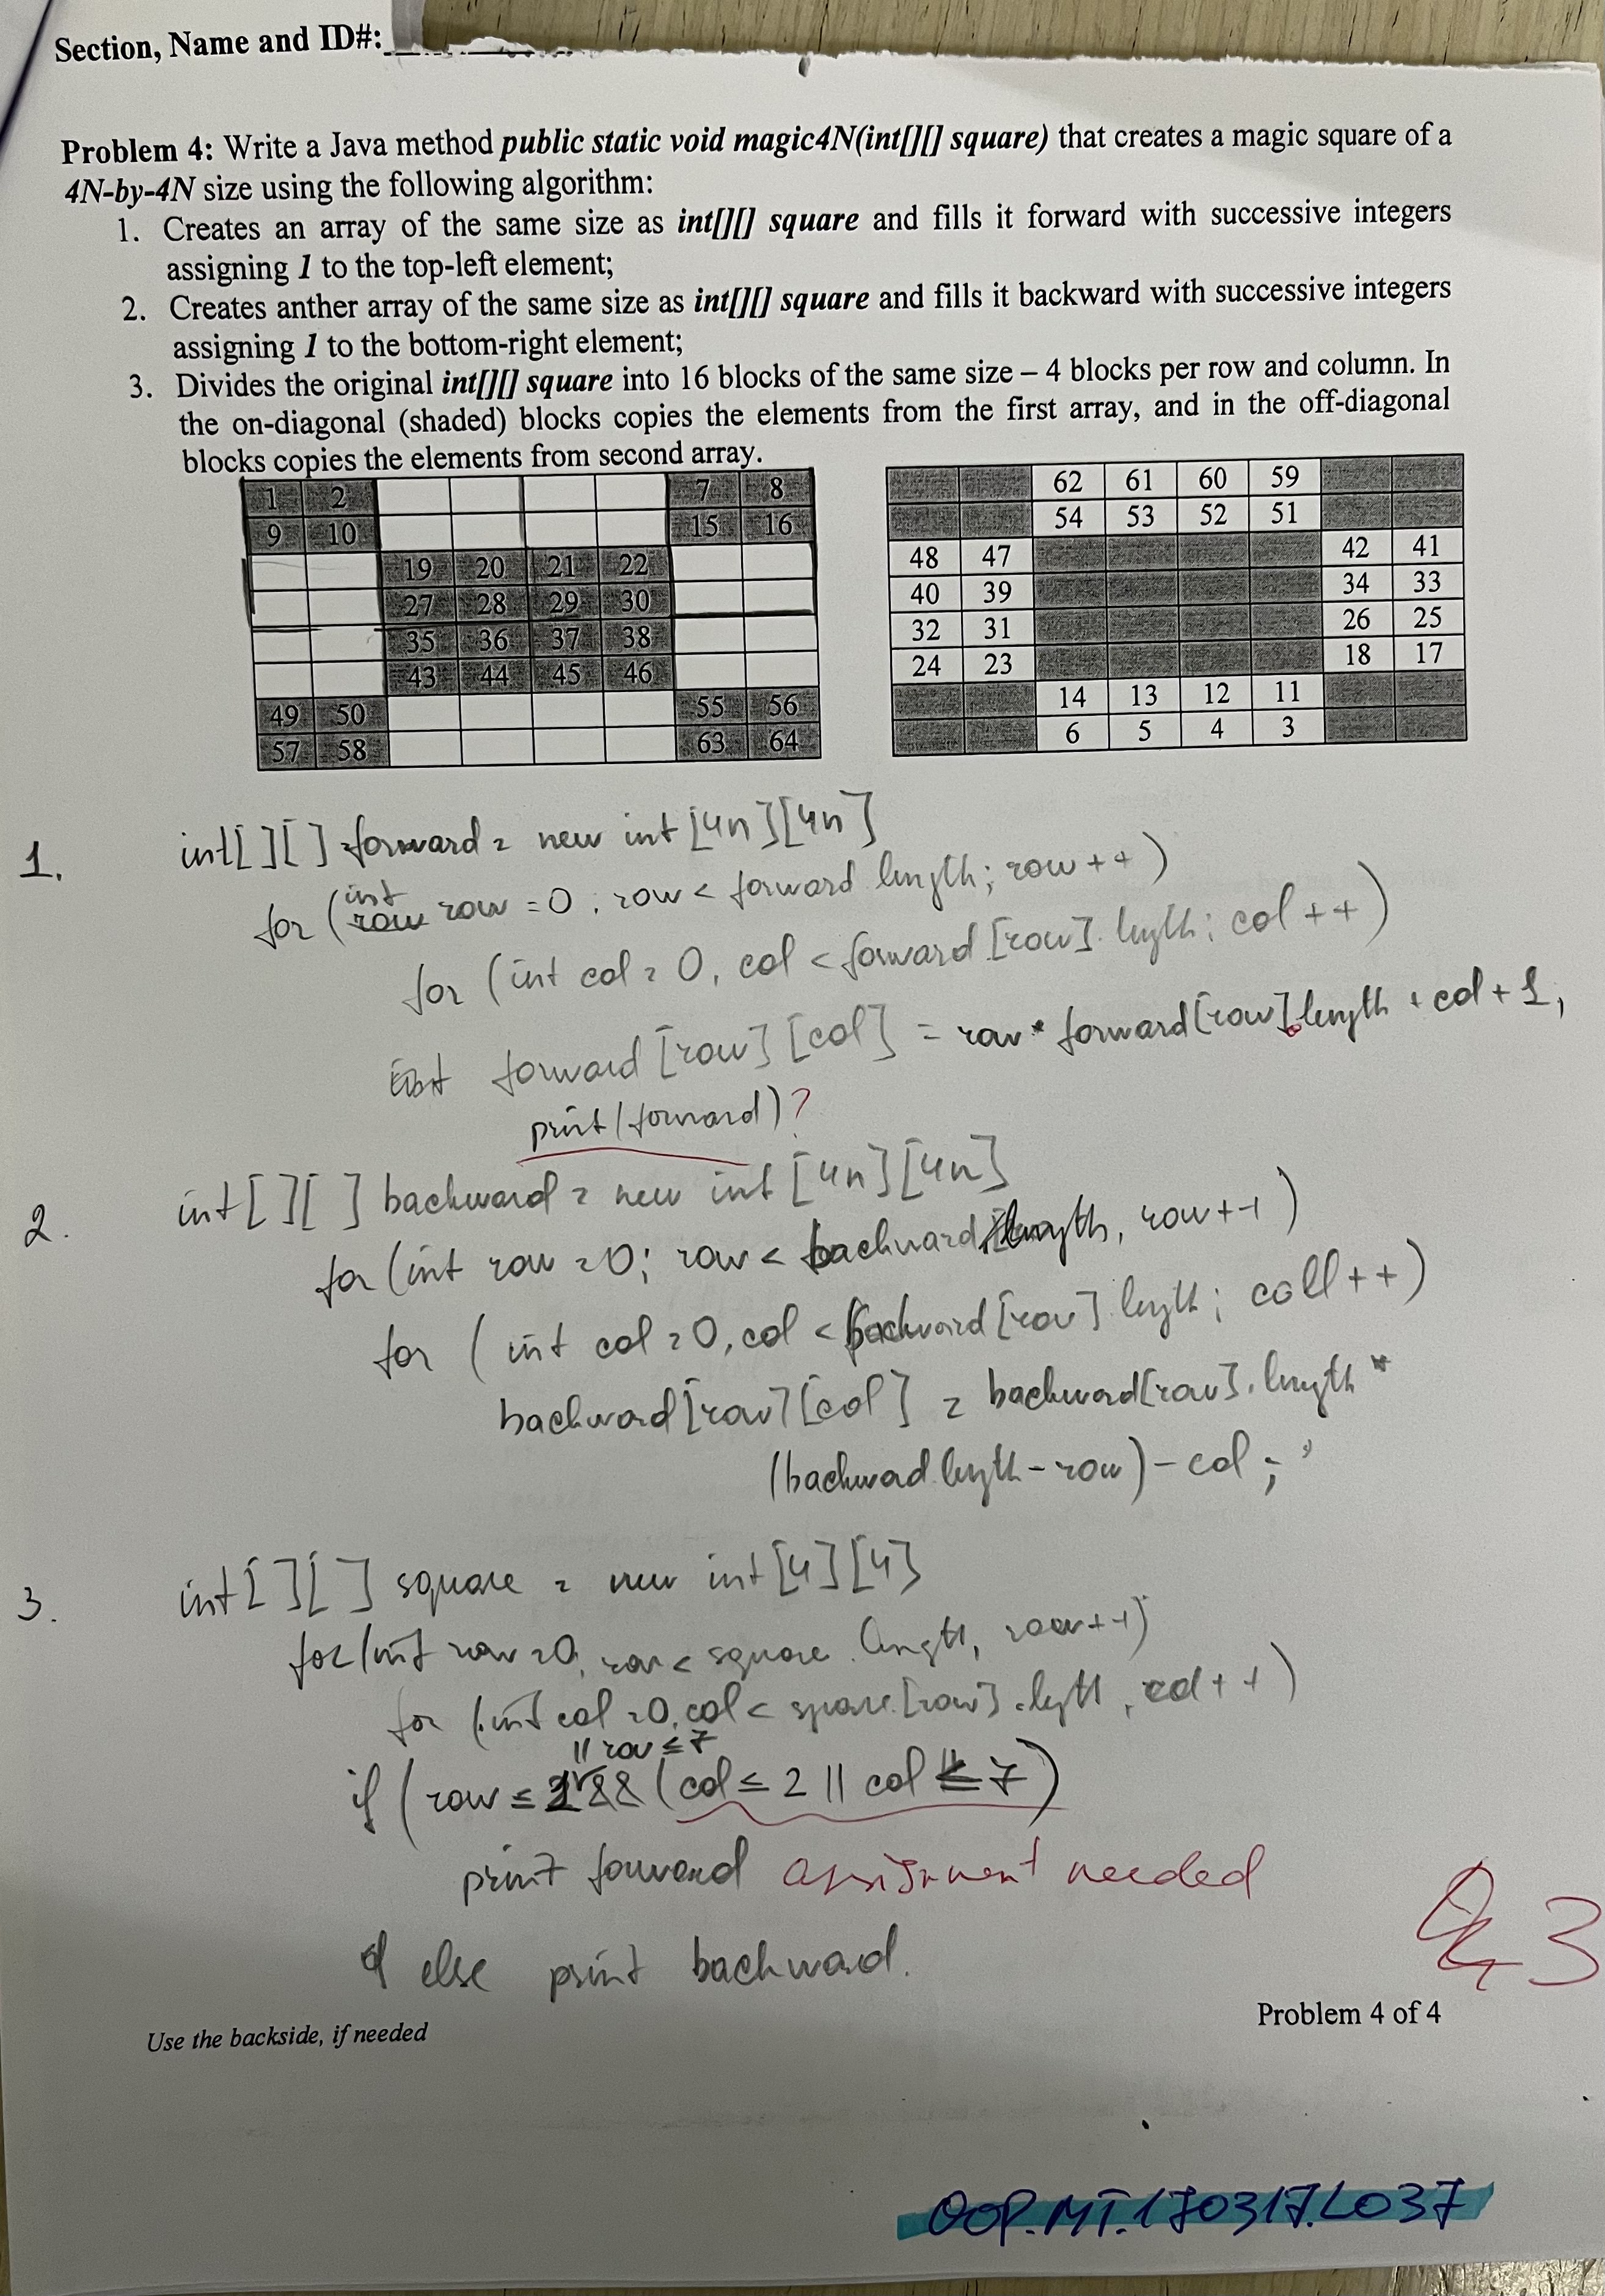 Section, Name and ID#:
Problem 4: Write a Java method public static void magic4N(int[][] square) that creates a magic square of a
4N-by-4N size using the following algorithm:
1. Creates an array of the same size as int[][] square and fills it forward with successive integers
assigning 1 to the top-left element;
2. Creates anther array of the same size as int[][] square and fills it backward with successive integers
assigning 1 to the bottom-right element;
3. Divides the original int[][] square into 16 blocks of the same size – 4 blocks per row and column. In
the on-diagonal (shaded) blocks copies the elements from the first array, and in the off-diagonal
blocks copies the elements from second array.
1 2 7 8
9 10 15 16
19 20 21 22
27 28 29 30
35 36 37 38
43 44 45 46
49 50 55 56
57 58 63 64
62 61 60 59
54 53 52 51
48 47 42 41
40 39 34 33
32 31 26 25
24 23 18 17
14 13 12 11
6 5 4 3
1. int[][] forward = new int[4n][4n]
int
for (row row = 0; row < forward length; row++)
for (int col = 0, col < forward[row].length; col++)
forward[row][col] = row * forward[row].length + col + 1,
print(forward)?
2. int[][] backward = new int[4n][4n]
for (int row = 0; row < backward.length, row++)
for (int col = 0, col < backward[row].length; coll++)
backward[row][col] = backward[row].length *
(backward.length - row) - col;
3. int[][] square = new int[4][4]
for (int row = 0, row < square.length, row++)
for (int col = 0, col < square[row].length, col++)
|| row ≤ 7
if (row ≤ 2 && (col ≤ 2 || col ≤ 7)
print forward assignment needed
else print backward.
3
Problem 4 of 4
Use the backside, if needed
OOP.MT.170317.L037